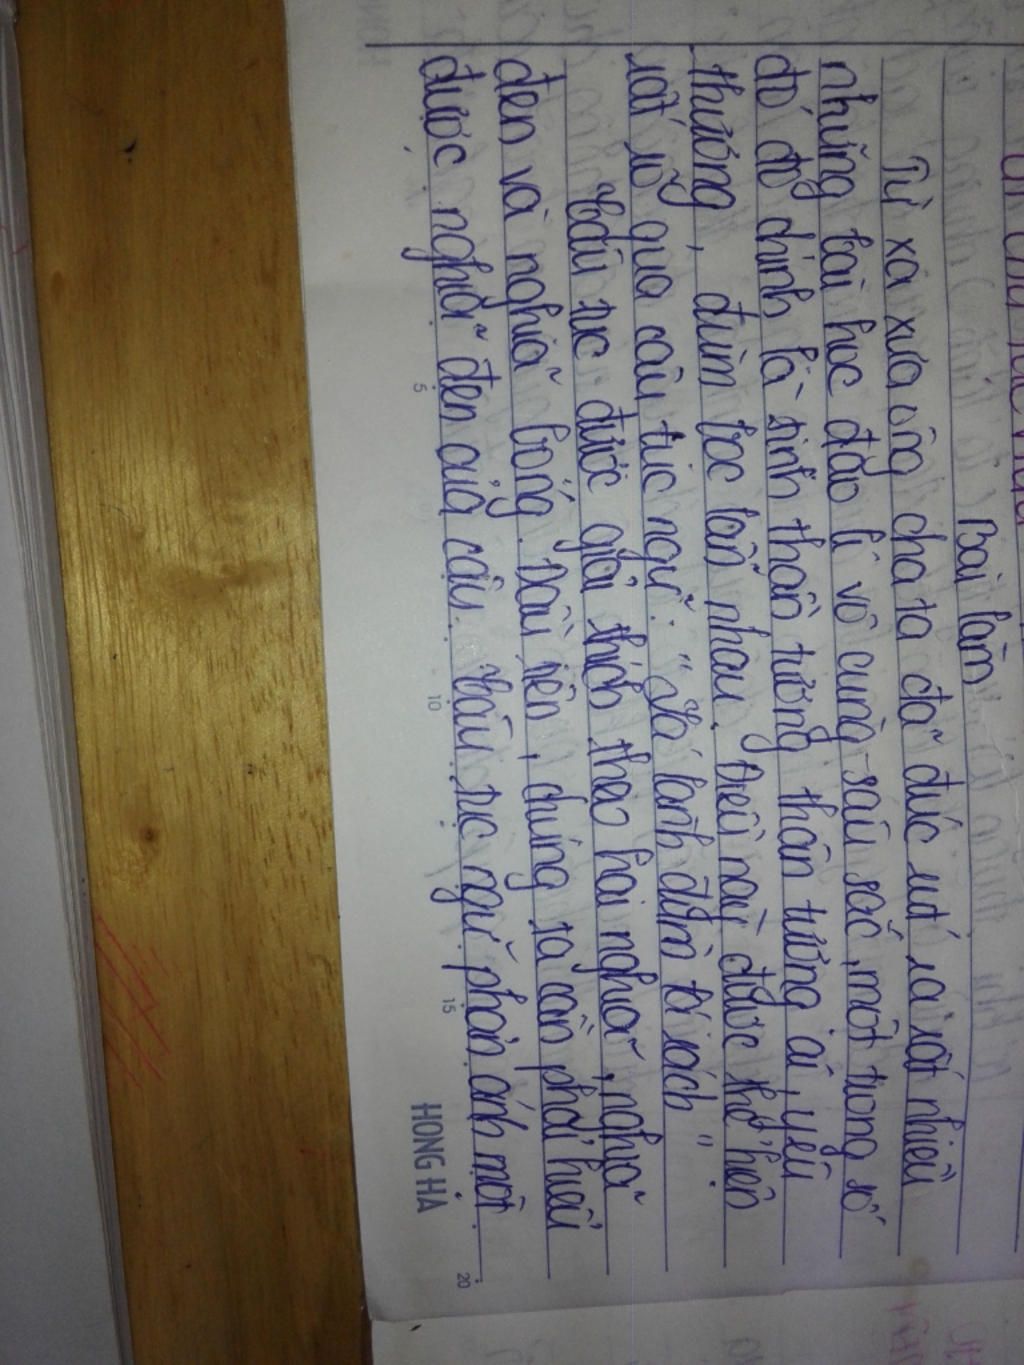 Bài làm
Từ xa xưa ông cha ta đã đúc rút ra rất nhiều
những bài học đạo lí vô cùng sâu sắc, một trong số
đó đó chính là tinh thần tương thân tương ái, yêu
thương, đùm bọc lẫn nhau. Điều này được thể hiện
rất rõ qua câu tục ngữ: "Lá lành đùm lá rách".
Câu tục được giải thích theo hai nghĩa, nghĩa
đen và nghĩa bóng. Đầu tiên, chúng ta cần phải hiểu
được nghĩa đen của câu. Câu tục ngữ phản ánh một
5 10 15 20
HONG HA